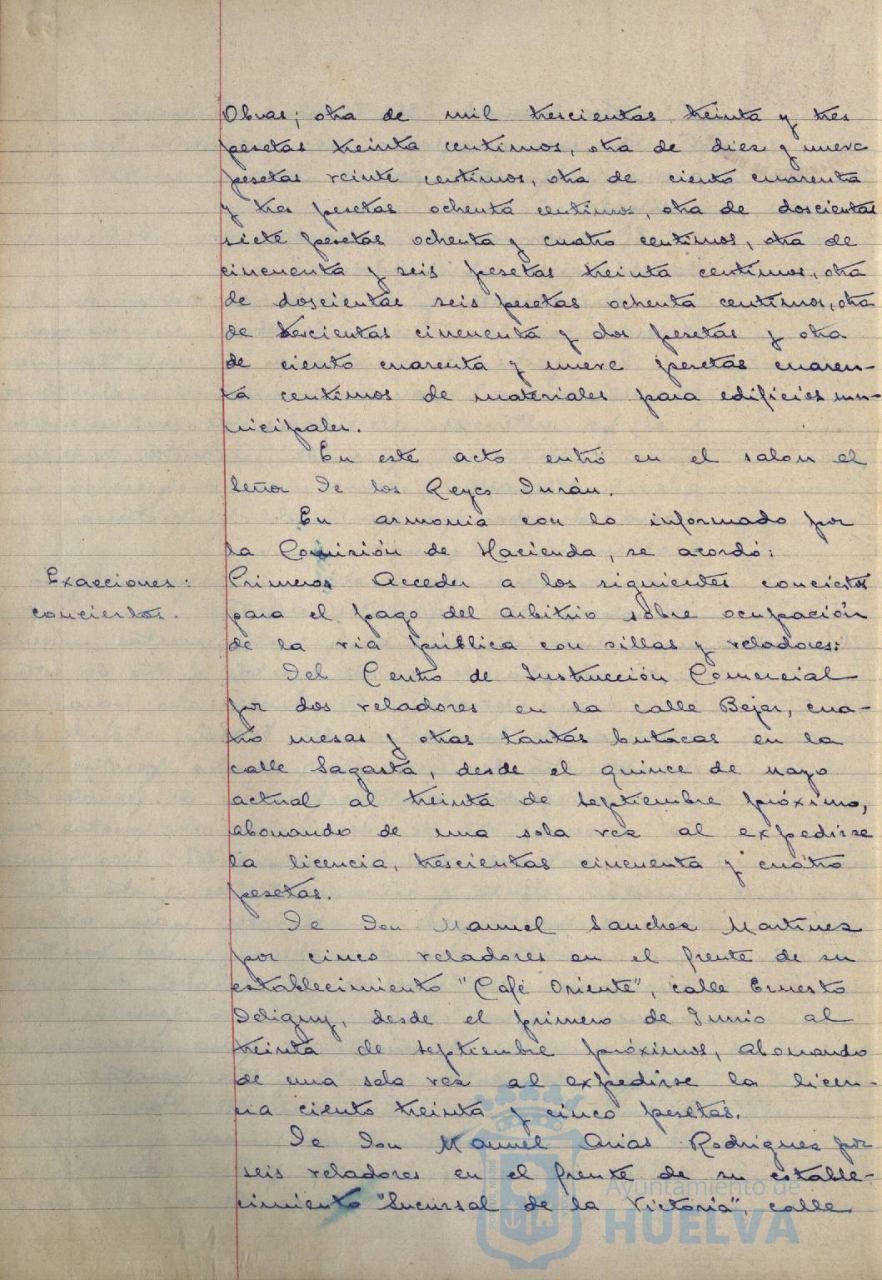 Obras; otra de mil trescientas treinta y tres
pesetas treinta centimos, otra de diez y nueve
pesetas veinte centimos, otra de ciento cuarenta
y tres pesetas ochenta centimos, otra de doscientas
siete pesetas ochenta y cuatro centimos, otra de
cincuenta y seis pesetas treinta centimos, otra
de doscientas seis pesetas ochenta centimos, otra
de trescientas cincuenta y dos pesetas y otra
de ciento cuarenta y nueve pesetas cuaren-
ta centimos de materiales para edificios mu-
nicipales.
En este acto entró en el salon el
Señor De los Reyes Durán.
En armonia con lo informado por
la Comisión de Hacienda, se acordó:
Exacciones:
conciertos.
Primero: Acceder a los siguientes conciertos
para el pago del arbitrio sobre ocupación
de la via pública con sillas y veladores:
Del Centro de Instrucción Comercial
por dos veladores en la calle Bejar, cua-
tro mesas y otras tantas butacas en la
calle Sagasta, desde el quince de mayo
actual al treinta de septiembre próximo,
abonando de una sola vez al expedirse
la licencia, trescientas cincuenta y cuatro
pesetas.
De Don Manuel Sanchez Martinez
por cinco veladores en el frente de su
establecimiento "Café Oriente", calle Ernesto
Deligny, desde el primero de Junio al
treinta de septiembre próximos, abonando
de una sola vez al expedirse la licen-
cia ciento treinta y cinco pesetas.
De Don Manuel Arias Rodriguez por
seis veladores en el frente de su estable-
cimiento "Sucursal de la Victoria", calle
Ayuntamiento de
HUELVA